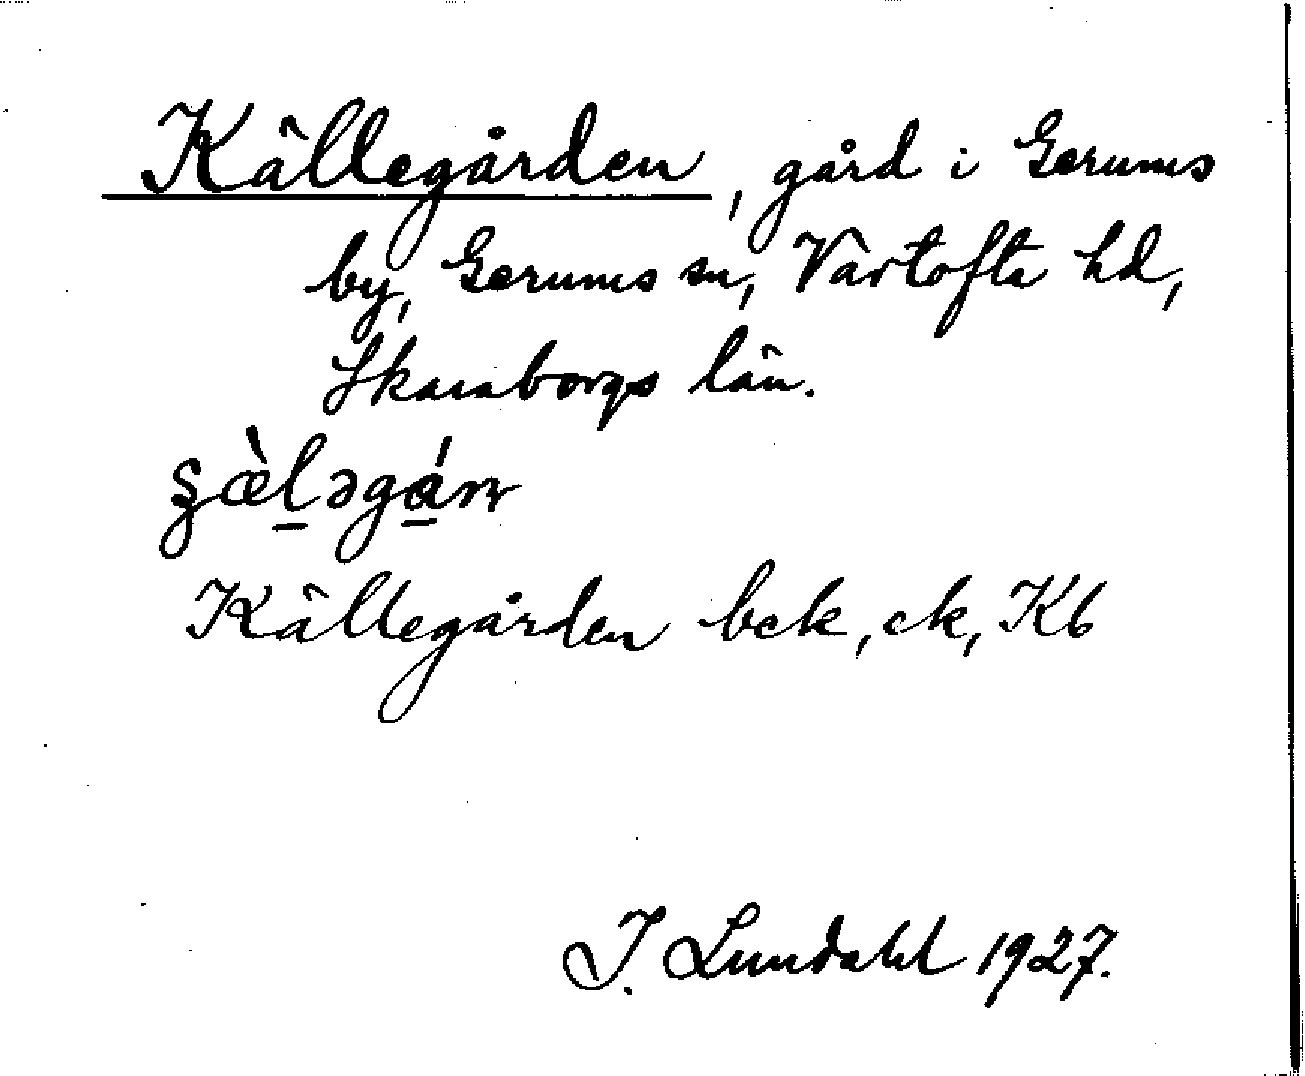 Källegården, gård i Gerums
by, Gerums sn, Vartofta hd,
Skaraborgs län.
Källegården bck, ck, Kb
I. Lundahl 1927.